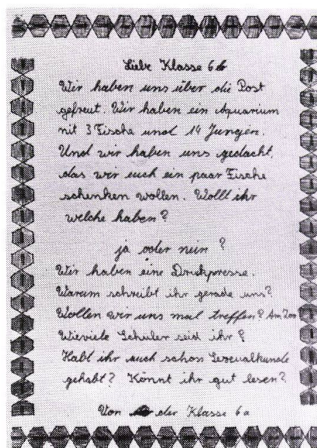 Liebe Klasse 6b
Wir haben uns über die Post
gefreut. Wir haben ein Aquarium
mit 3 Fische und 14 Jungen.
Und wir haben uns gedacht,
das wir euch ein paar Fische
schenken wollen. Wollt ihr
welche haben?
ja oder nein?
Wir haben eine Druckpresse.
Warum schreibt ihr gerade uns?
Wollen wir uns mal treffen? Am Zoo
Wieviele Schuler seid ihr?
Habt ihr auch schon Sexualkunde
gehabt? Könnt ihr gut lesen?
Von der Klasse 6a